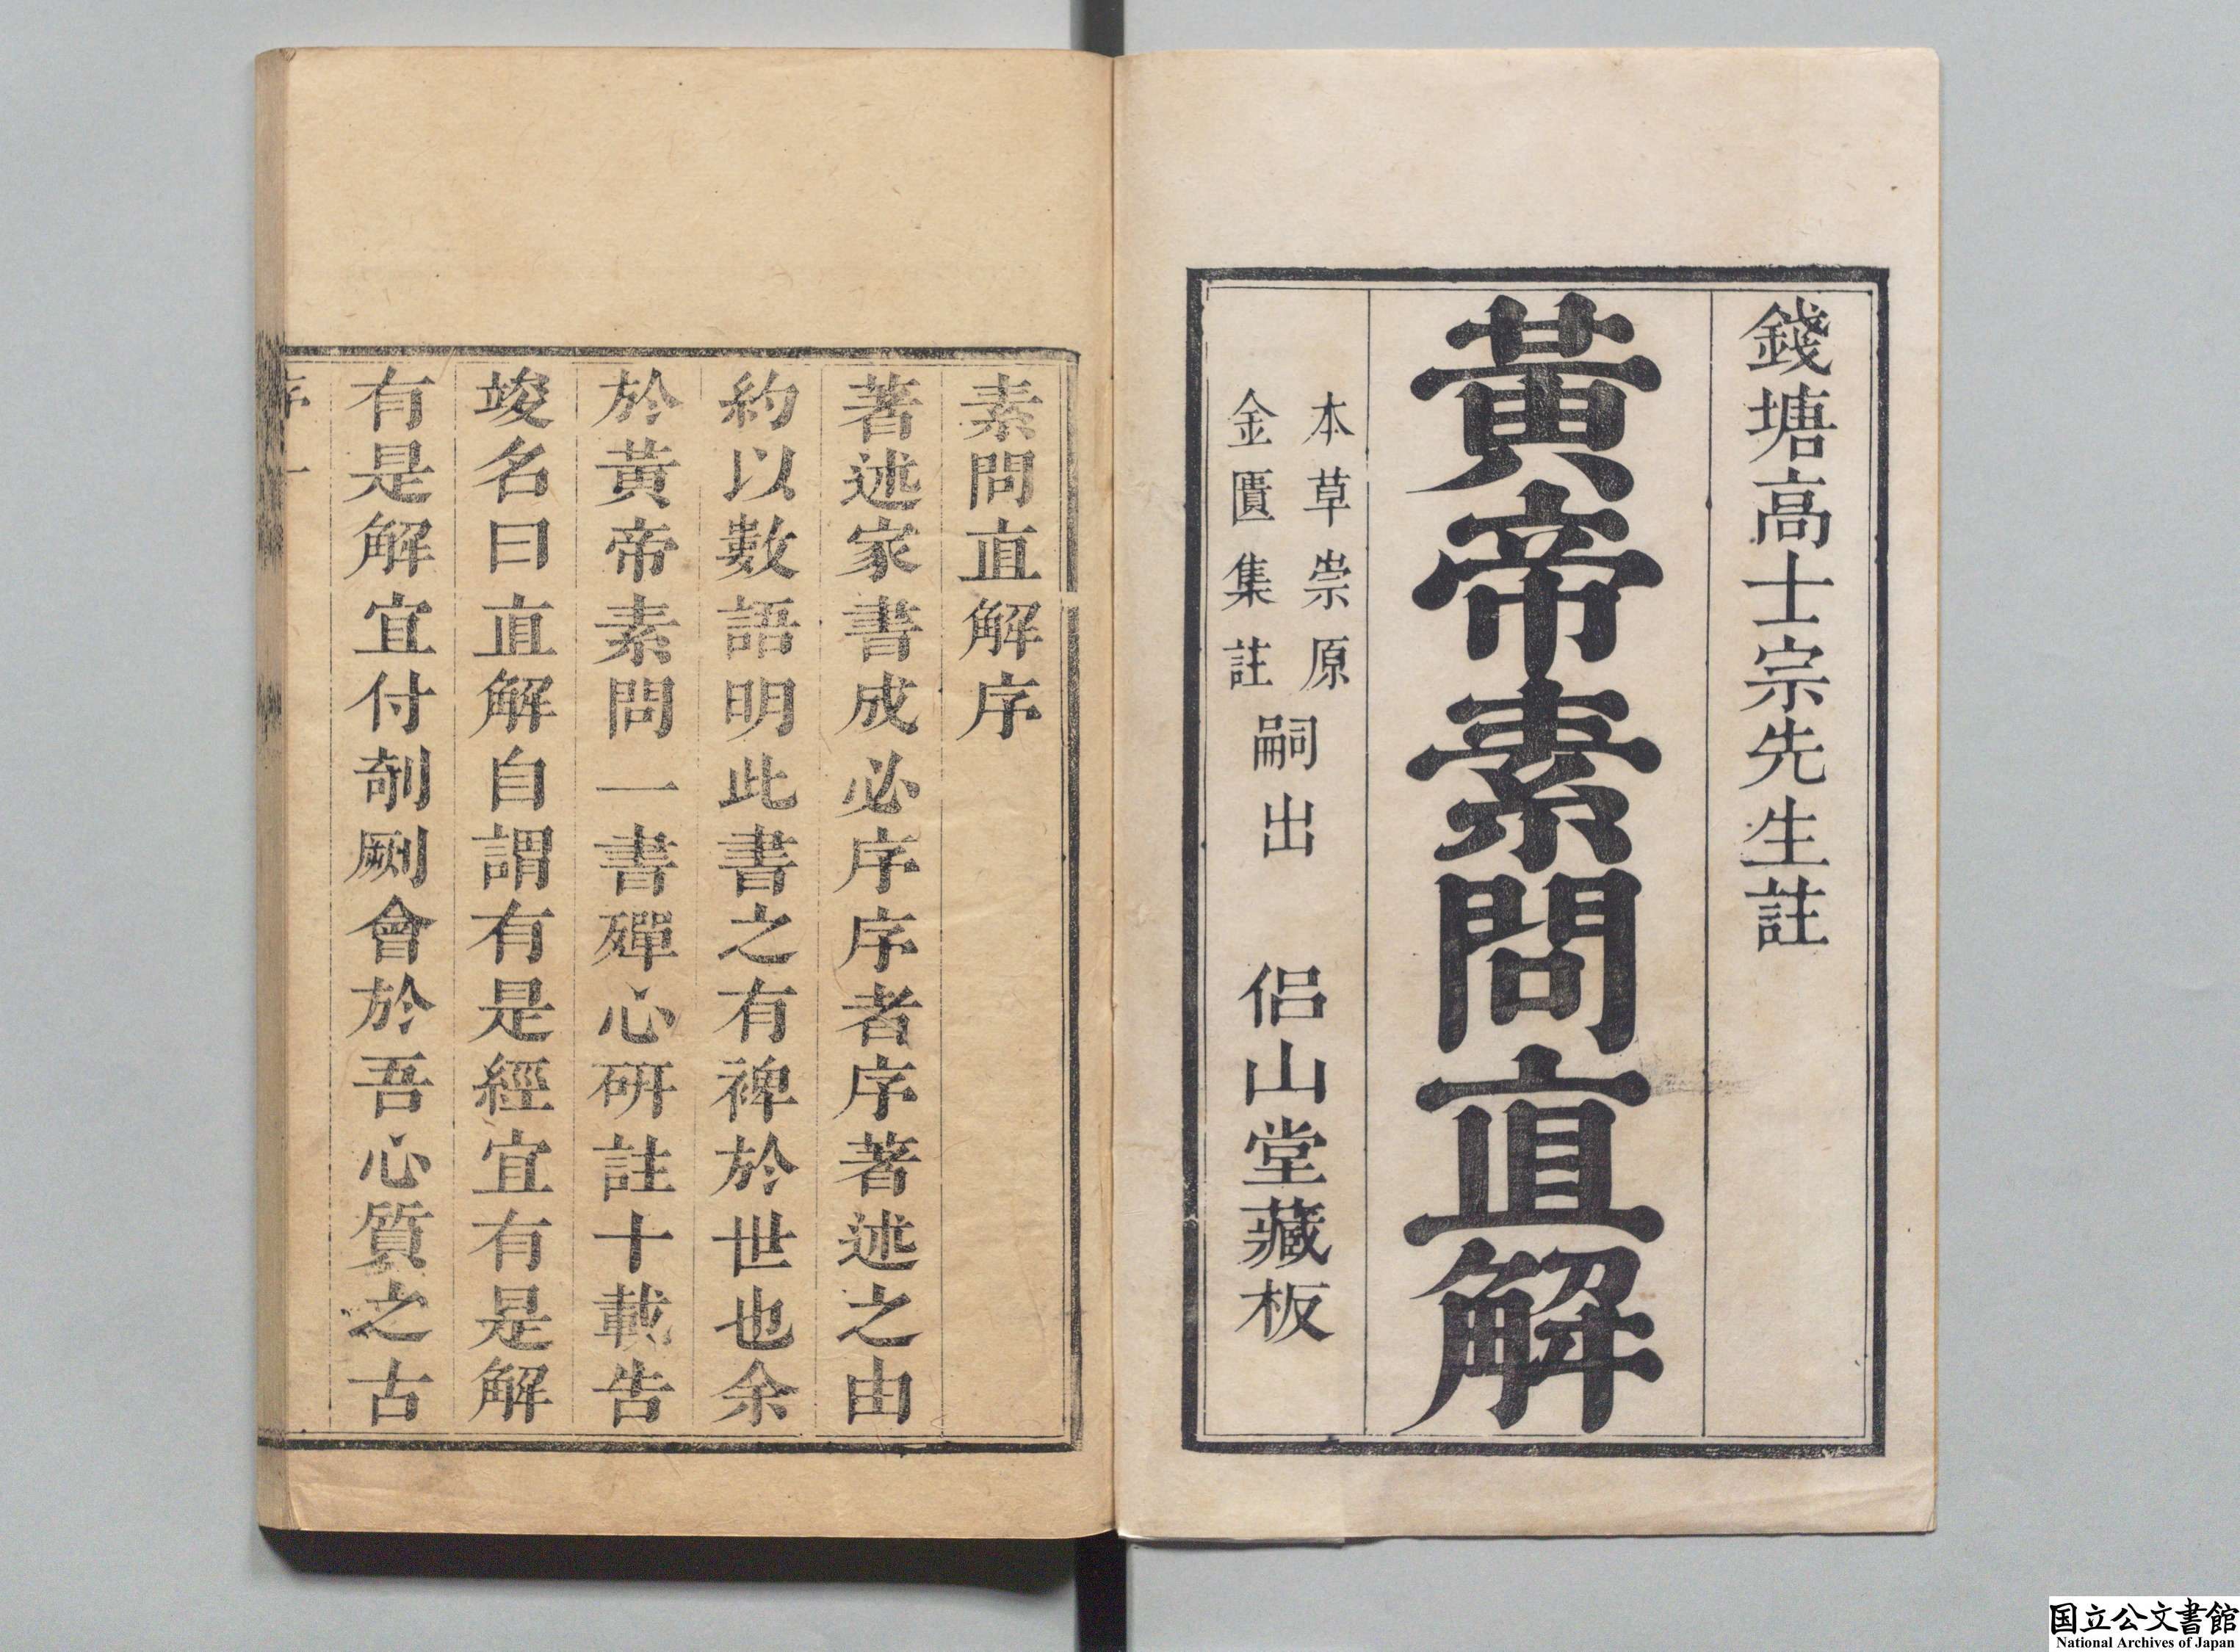 錢塘高士宗先生註
黃帝素問直解
本草崇原
金匱集註
嗣出
侣山堂藏板
素問直解序
著述家書成必序序者序著述之由
約以數語明此書之有裨於世也余
於黃帝素問一書殫心硏註十載告
竣名曰直解自謂有是經宜有是解
有是解宜付剞劂會於吾心質之古
序一
国立公文書館
National Archives of Japan